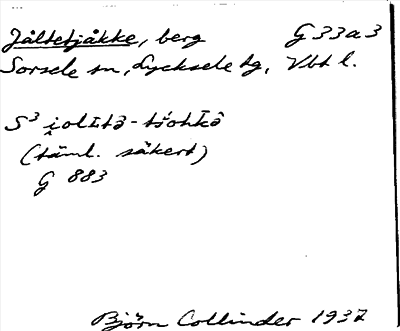 Jåltetjåkke, berg G 33 a 3
Sorsele sn, Lycksele tg, Vbt l.
S³ i̯olᴵtə - tšohkə̄
(täml. säkert)
G 883
Björn Collinder 1937